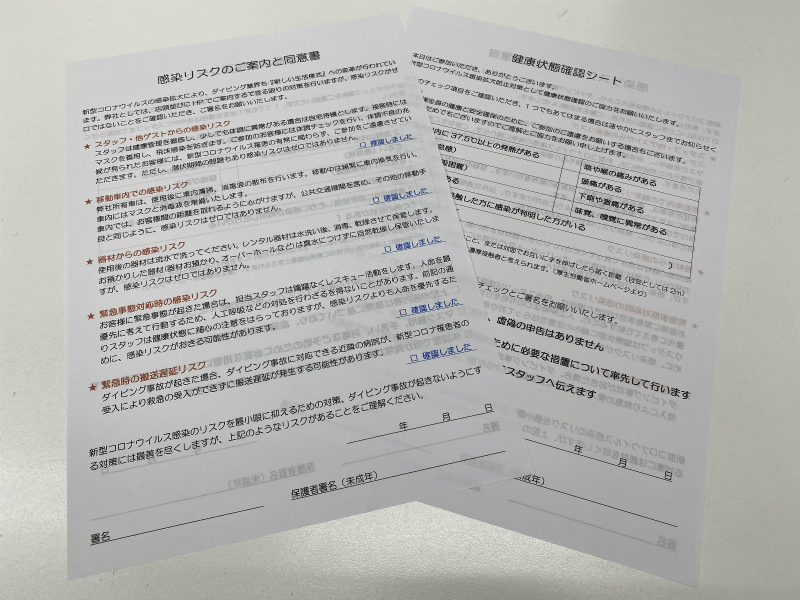 感染リスクのご案内と同意書
新型コロナウイルスの感染拡大により、ダイビング業界も『新しい生活様式』への変革が行われてい
ます。弊社としては、店頭並びにHPでご案内するでき得る限りの対策を行いますが、感染リスクがゼ
ロではないことをご確認いただき、ご署名をお願いいたします。
★ スタッフ・他ゲストからの感染リスク
スタッフは健康管理を徹底し、少しでも体調に異常がある場合は自宅待機とします。接客時には
マスクを着用し、飛沫感染を防ぎます。ご参加のお客様には体調チェックを行い、体調不良の兆
候が見られたお客様には、新型コロナウイルス罹患の有無に関わらず、ご参加をご遠慮させてい
ただきます。ただし、潜伏期間の問題もあり感染リスクはゼロではありません。
☐ 確認しました
★ 移動車内での感染リスク
弊社所有車は、使用後に車内清掃、消毒液の散布を行います。移動中は頻繁に車内換気を行い、
車内にはマスクと消毒液を常備いたします。
車内では、お客様間の距離を取れるように心がけますが、公共交通機関を含め、その他の移動手
段と同じように、感染リスクはゼロではありません。
☐ 確認しました
★ 器材からの感染リスク
使用後の器材は流水で洗ってください。レンタル器材は水洗い後、消毒、乾燥させて保管します。
お預かりした器材(器材お預かり、オーバーホールなど)は真水につけずに自然乾燥し保管いたしま
すが、感染リスクはゼロではありません。
☐ 確認しました
★ 緊急事態対応時の感染リスク
お客様に緊急事態が起きた場合は、担当スタッフは躊躇なくレスキュー活動をします。人命を最
優先に考えて行動するため、人工呼吸などの対処を行わざるを得ないことがあります。前記の通
りスタッフは健康状態に細心の注意をはらっておりますが、感染リスクよりも人命を優先するた
めに、感染リスクがおきる可能性があります。
☐ 確認しました
★ 緊急時の搬送遅延リスク
ダイビング事故が起きた場合、ダイビング事故に対応できる近隣の病院が、新型コロナ罹患者の
受入により救急の受入ができずに搬送遅延が発生する可能性があります。
☐ 確認しました
新型コロナウイルス感染のリスクを最小限に抑えるための対策、ダイビング事故が起きないようにす
る対策には最善を尽くしますが、上記のようなリスクがあることをご理解ください。
年 月 日
保護者署名（未成年）
署名
健康状態確認シート
本日はご参加いただき、ありがとうございます。
新型コロナウイルス感染拡大防止対策として健康状態確認のご協力をお願いいたします。
のチェック項目をご確認いただき、1つでもあてはまる場合は速やかにスタッフまでお知らせく
客様の健康と安全確保のために、ご参加のご遠慮をお願いする場合もございます。
ためでもございますのでご理解とご協力をお願い申し上げます。
内に37.5℃以上の発熱がある
咳や喉の痛みがある
頭痛がある
下痢や腹痛がある
味覚、嗅覚に異常がある
触した方に感染が判明した方がいる
チェックとご署名をお願いいたします。
、虚偽の申告はありません
ために必要な措置について率先して行います
スタッフへ伝えます
年 月 日
成年）